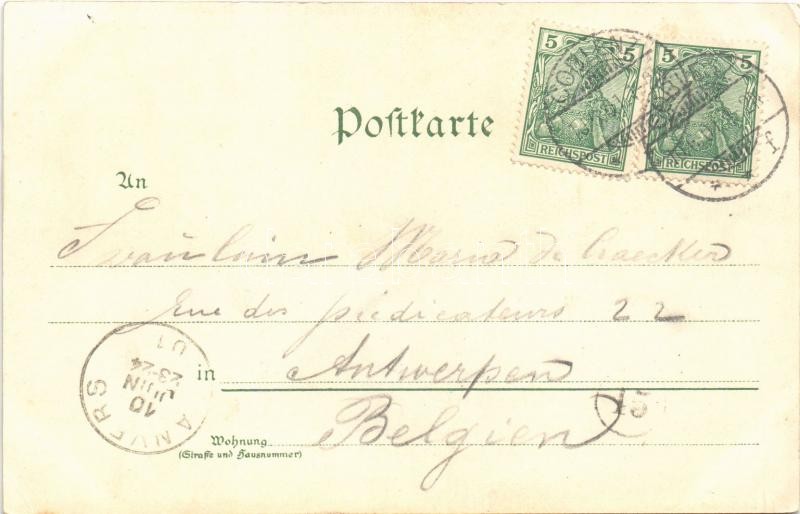 5 5
REICHSPOST
5 5
REICHSPOST
Postkarte
An
Fräulein Maria de Craecker
Rue des prédicateurs 22
in Antwerpen
Belgien
Wohnung
(Straße und Hausnummer)
ANVERS
10
JUIN
23-24
01
f